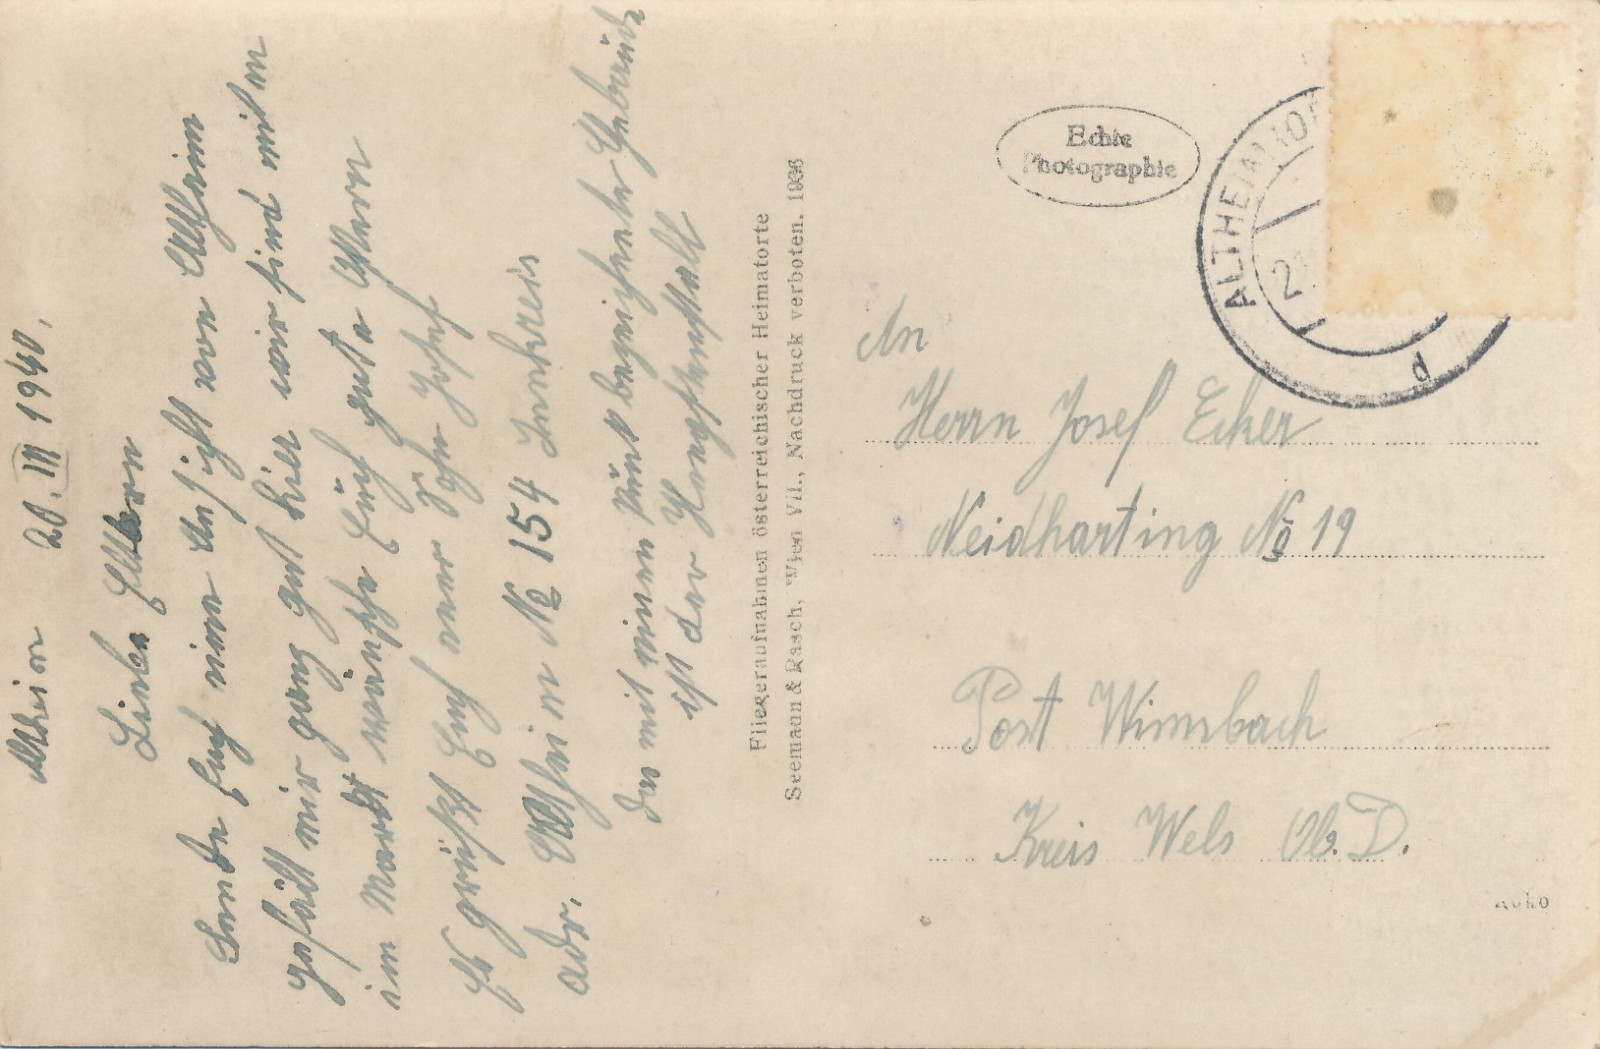 Altheim 20. III 1940.
Liebe Eltern
Sende Euch eine Ansicht von Altheim
gefällt mir ganz gut hier wir sind mitten
im Markt wünsche Euch gute Ostern
Es grüßt Euch euer Sohn Josef
adr. Altheim No 154 Innkreis
Das mit einen Punkt bezeichnete Gebäude
ist der Hengstenstall
Fliegeraufnahmen österreichischer Heimatorte
Seemann & Rasch, Wien VII., Nachdruck verboten. 1936
Echte
Photographie
ALTHEIM
d
An
Herrn Josef Ecker
Neidharting No 19
Post Wimsbach
Kreis Wels Ob. D.